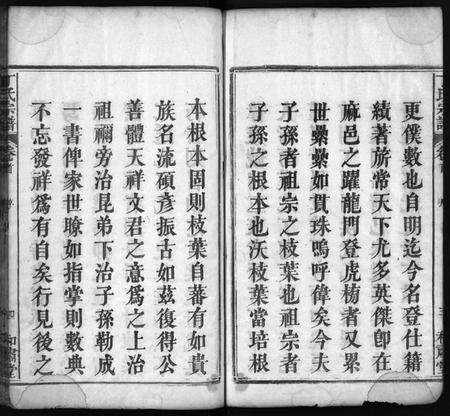 更僕數也自明迄今名登仕籍
績著旂常天下尤多英傑卽在
麻邑之躍龍門登虎榜者又累
世纍纍如貫珠嗚呼偉矣今夫
子孫者祖宗之枝葉也祖宗者
子孫之根本也沃枝葉當培根
本根本固則枝葉自蕃有如貴
族名流碩彥振古如茲復得公
善體天祥文君之意爲之上治
祖禰旁治昆弟下治子孫勒成
一書俾家世瞭如指掌則數典
不忘發祥爲有自矣行見後之
丁氏宗譜
卷首
四